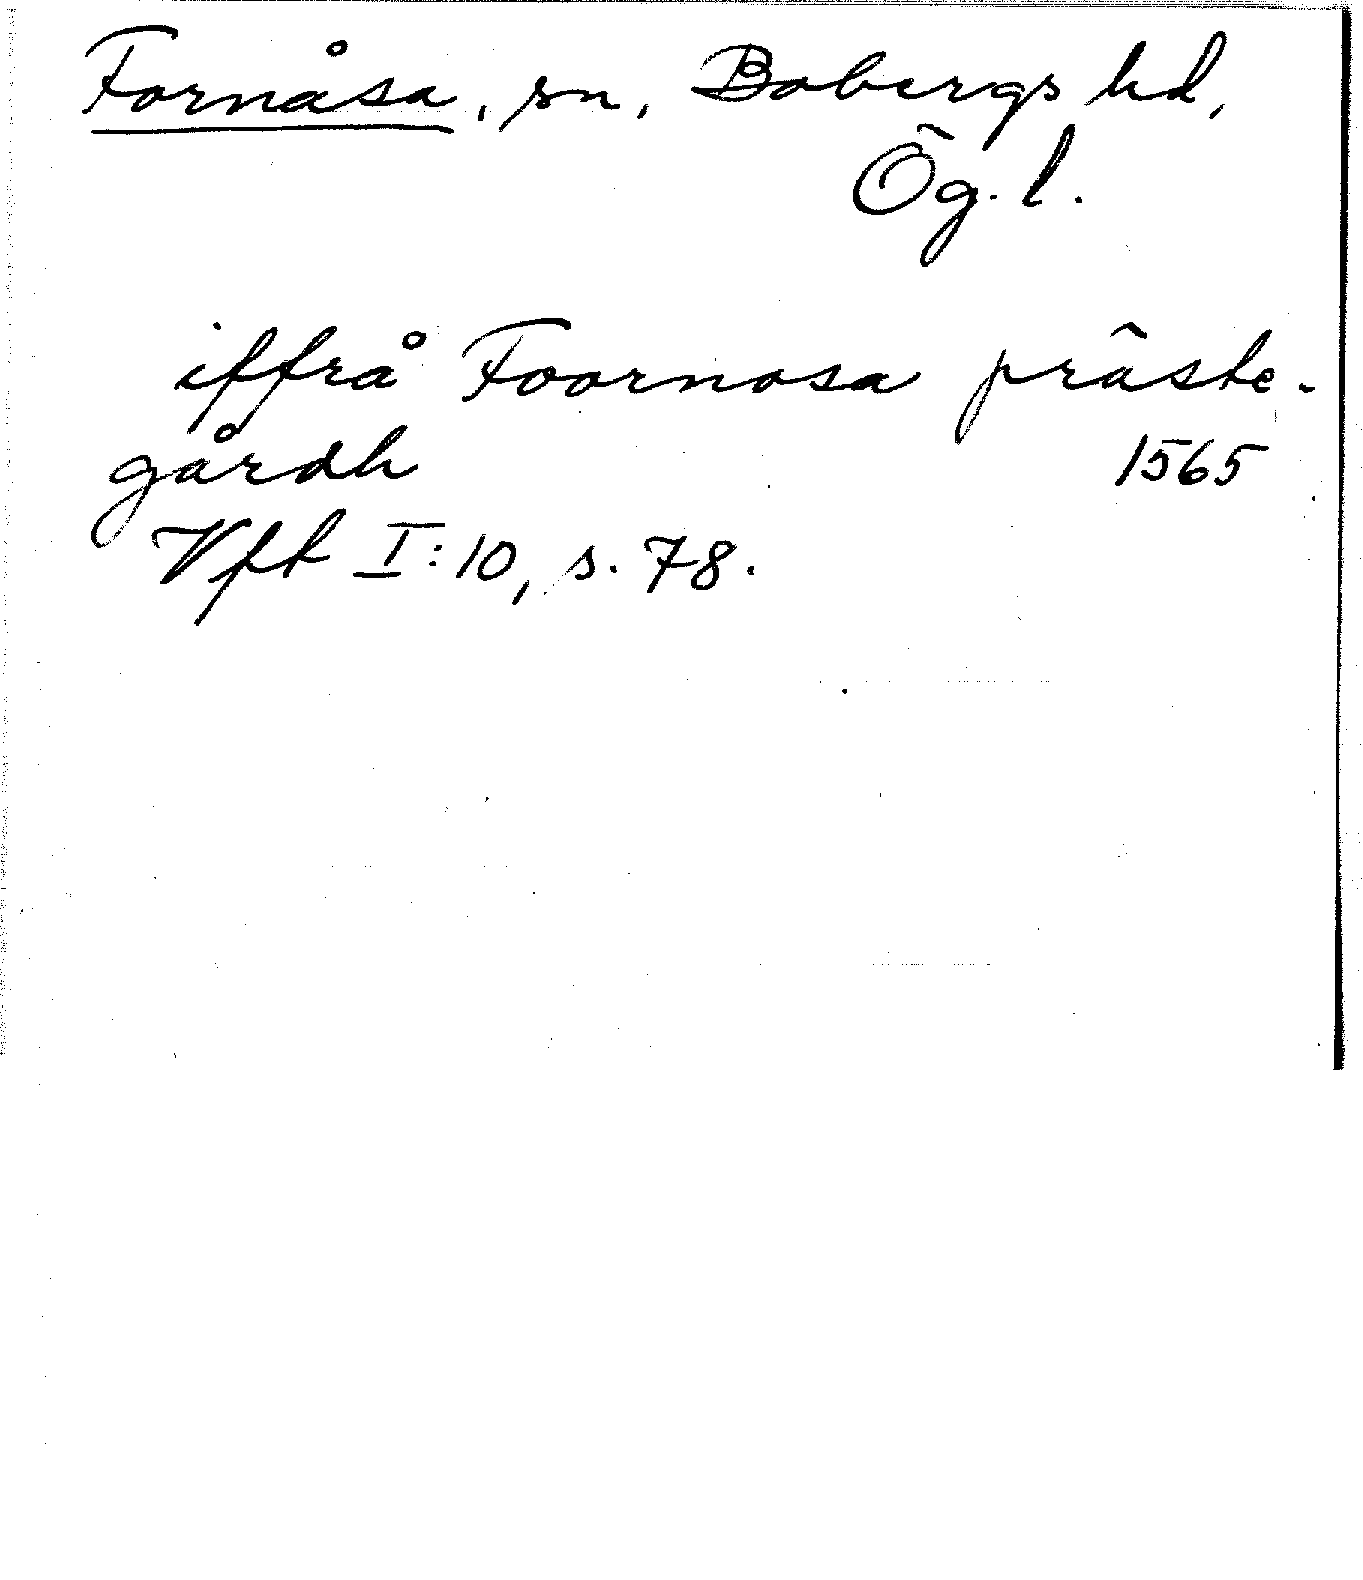 Fornåsa, sn, Bobergs hd,
Ög. l.
iffrå Foornosa präste-
gårdh 1565
Vfk I:10, s. 78.